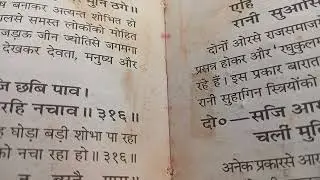 बनाकर अत्यन्त शोभित हो
से समस्त लोकोंको मोहित
जड़ाऊ जीन ज्योतिसे जगमगा
देखकर देवता, मनुष्य और
छबि पाव।
नचाव॥ ३१६॥
घोड़ा बड़ी शोभा पा रहा
को नचा रहा हो॥ ३१६॥
रानी सुआसि
दोनों ओरसे राजसमाज
प्रसन्न होकर और 'रघुकुल
रहे हैं। इस प्रकार बारात
रानी सुहागिन स्त्रियोंको
दो०—सजि आ
चलीं मु
अनेक प्रकारसे आ